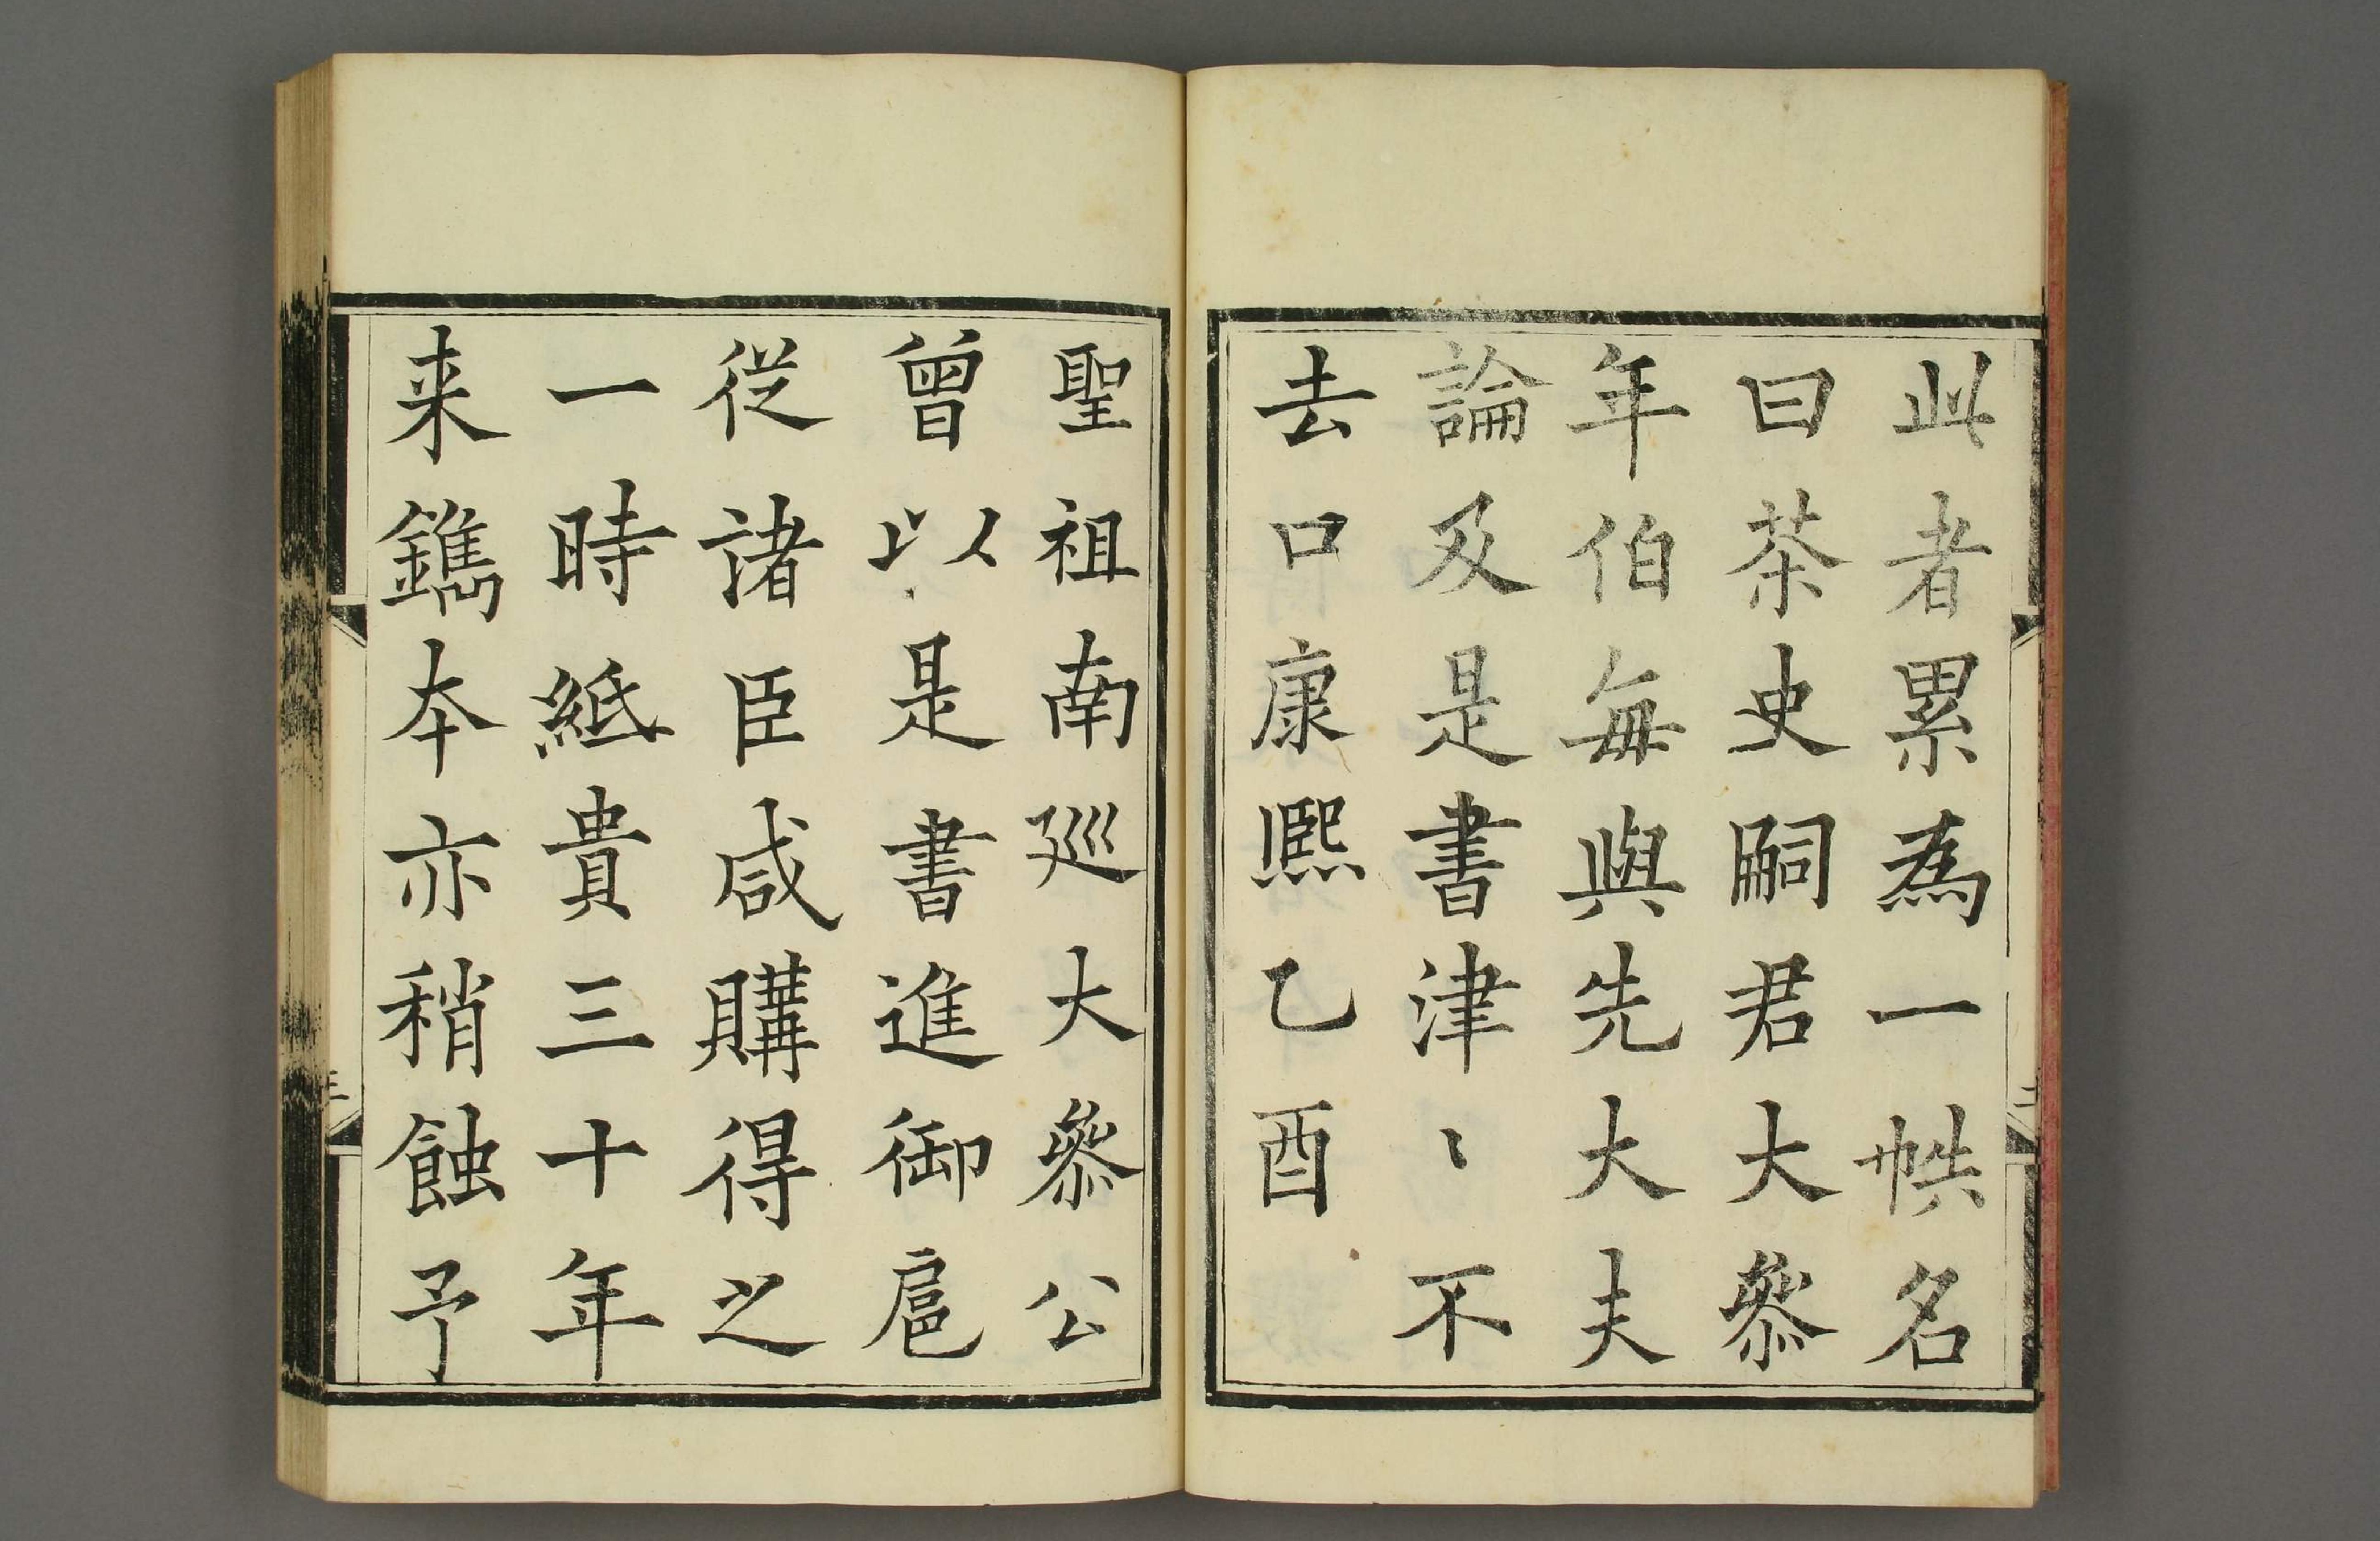 此者累為一帙名
曰茶史嗣君大叅
年伯每與先大夫
論及是書津〻不
去口康熙乙酉
聖祖南廵大叅公
曾以是書進御扈
從諸臣咸購得之
一時紙貴三十年
来鐫本亦稍蝕予